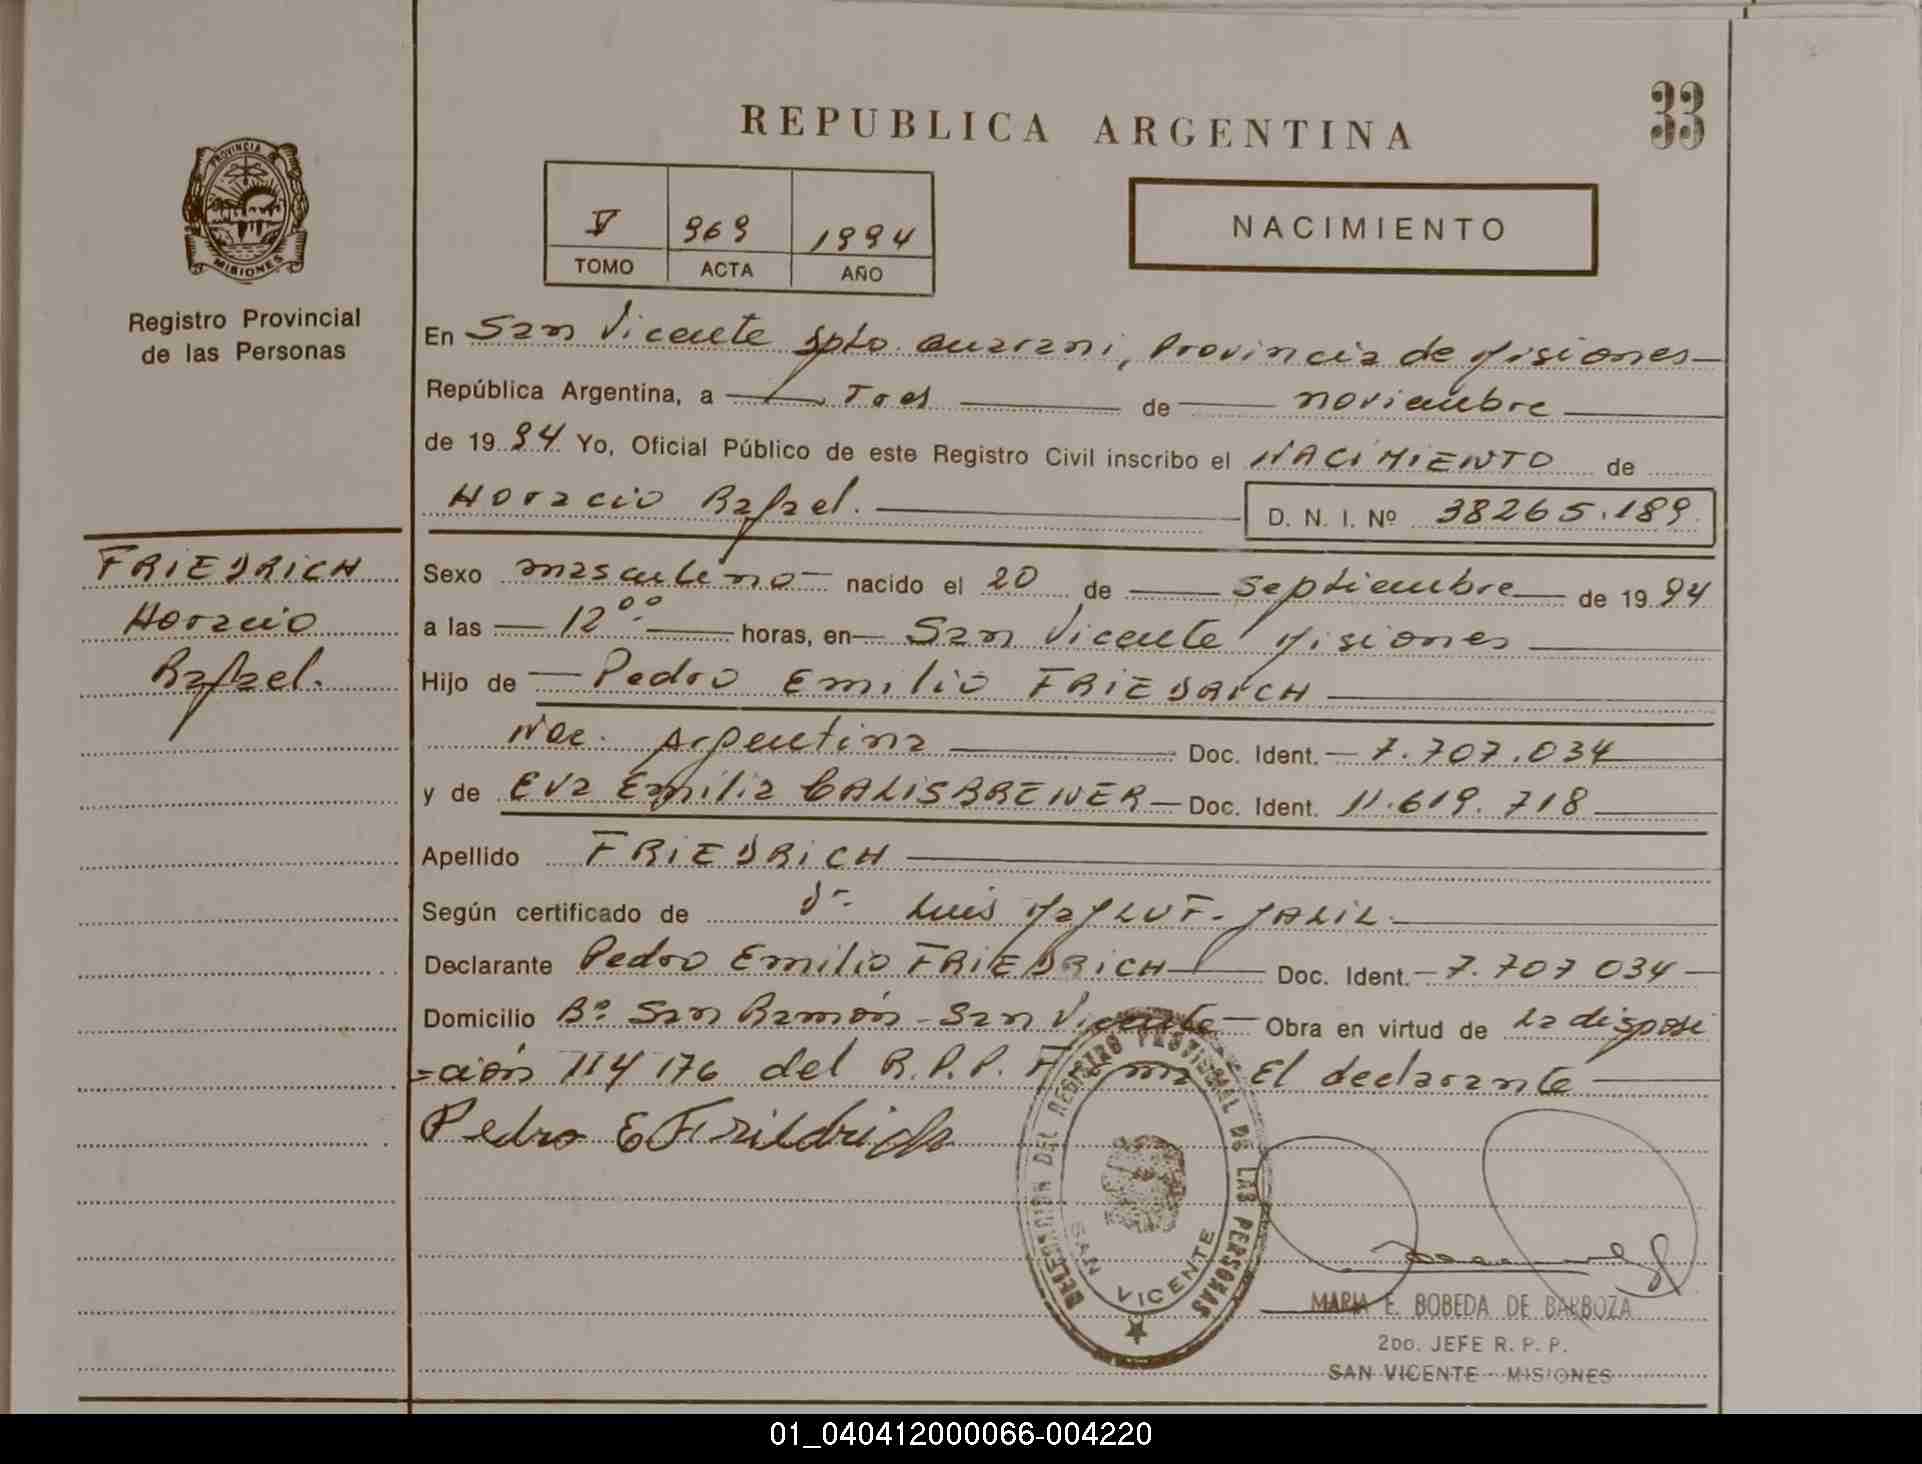 REPUBLICA ARGENTINA
33
PROVINCIA
MISIONES
Registro Provincial
de las Personas
V 969 1994
TOMO ACTA AÑO
NACIMIENTO
En San Vicente Dpto. Guarani, Provincia de Misiones
República Argentina, a Tres de noviembre
de 1994 Yo, Oficial Público de este Registro Civil inscribo el NACIMIENTO de
Horacio Rafael. D. N. I. Nº 38265.189
FRIEDRICH
Horacio
Rafael.
Sexo masculino nacido el 20 de septiembre de 1994
a las 12°° horas, en San Vicente Misiones
Hijo de Pedro Emilio FRIEDRICH
Nac. Argentina Doc. Ident. 7.707.034
y de Eva Emilia CALISBRENER Doc. Ident. 11.619.718
Apellido FRIEDRICH
Según certificado de Dr. Luis JALIL
Declarante Pedro Emilio FRIEDRICH Doc. Ident. 7.707 034
Domicilio Bº San Ramón - San Vicente Obra en virtud de la disposi
=ción 114/76 del R.P.P. Firma El declarante
Pedro E Friedrich
DELEGACION DEL REGISTRO PROVINCIAL DE LAS PERSONAS
SAN VICENTE
MARIA E. BOBEDA DE BARBOZA
2DO. JEFE R. P. P.
SAN VICENTE - MISIONES
01_040412000066-004220